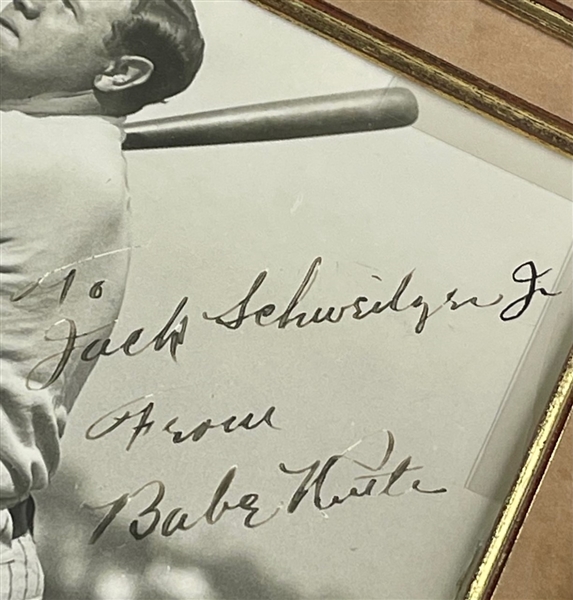 To
Jack Schweilzer Jr
From
Babe Ruth